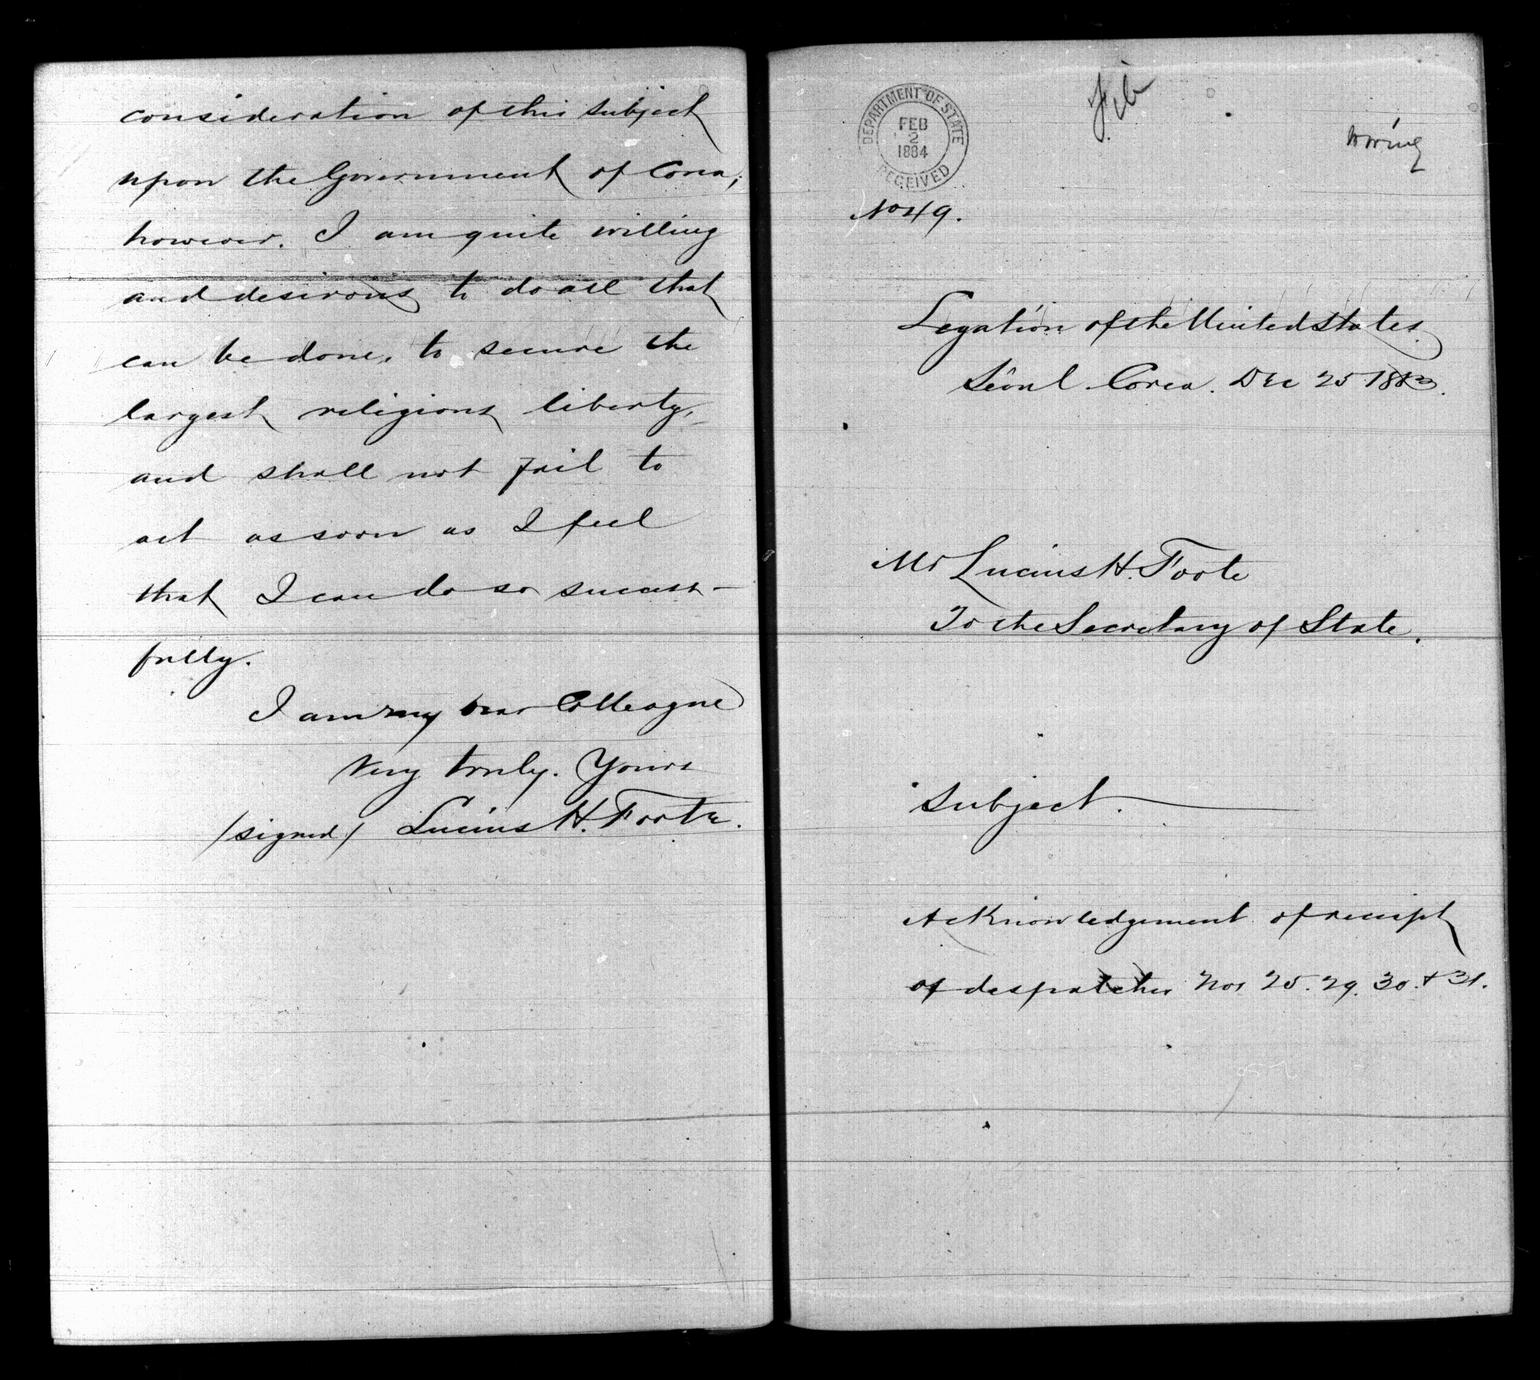 consideration of this subject
upon the Government of Corea;
however. I am quite willing
and desirous to do all that
can be done, to secure the
largest religious liberty,
and shall not fail to
act as soon as I feel
that I can do so success-
fully.
I am my dear Colleague
Very truly. Yours
/signed/ Lucius H. Foote.
DEPARTMENT OF STATE
FEB
2
1884
RECEIVED
No 49.
Legation of the United States.
Séoul Corea. Dec 25 1883.
Mr Lucius H. Foote
To the Secretary of State.
Subject.
Acknowledgement of receipt
of despatches Nos 25. 29. 30. & 31.